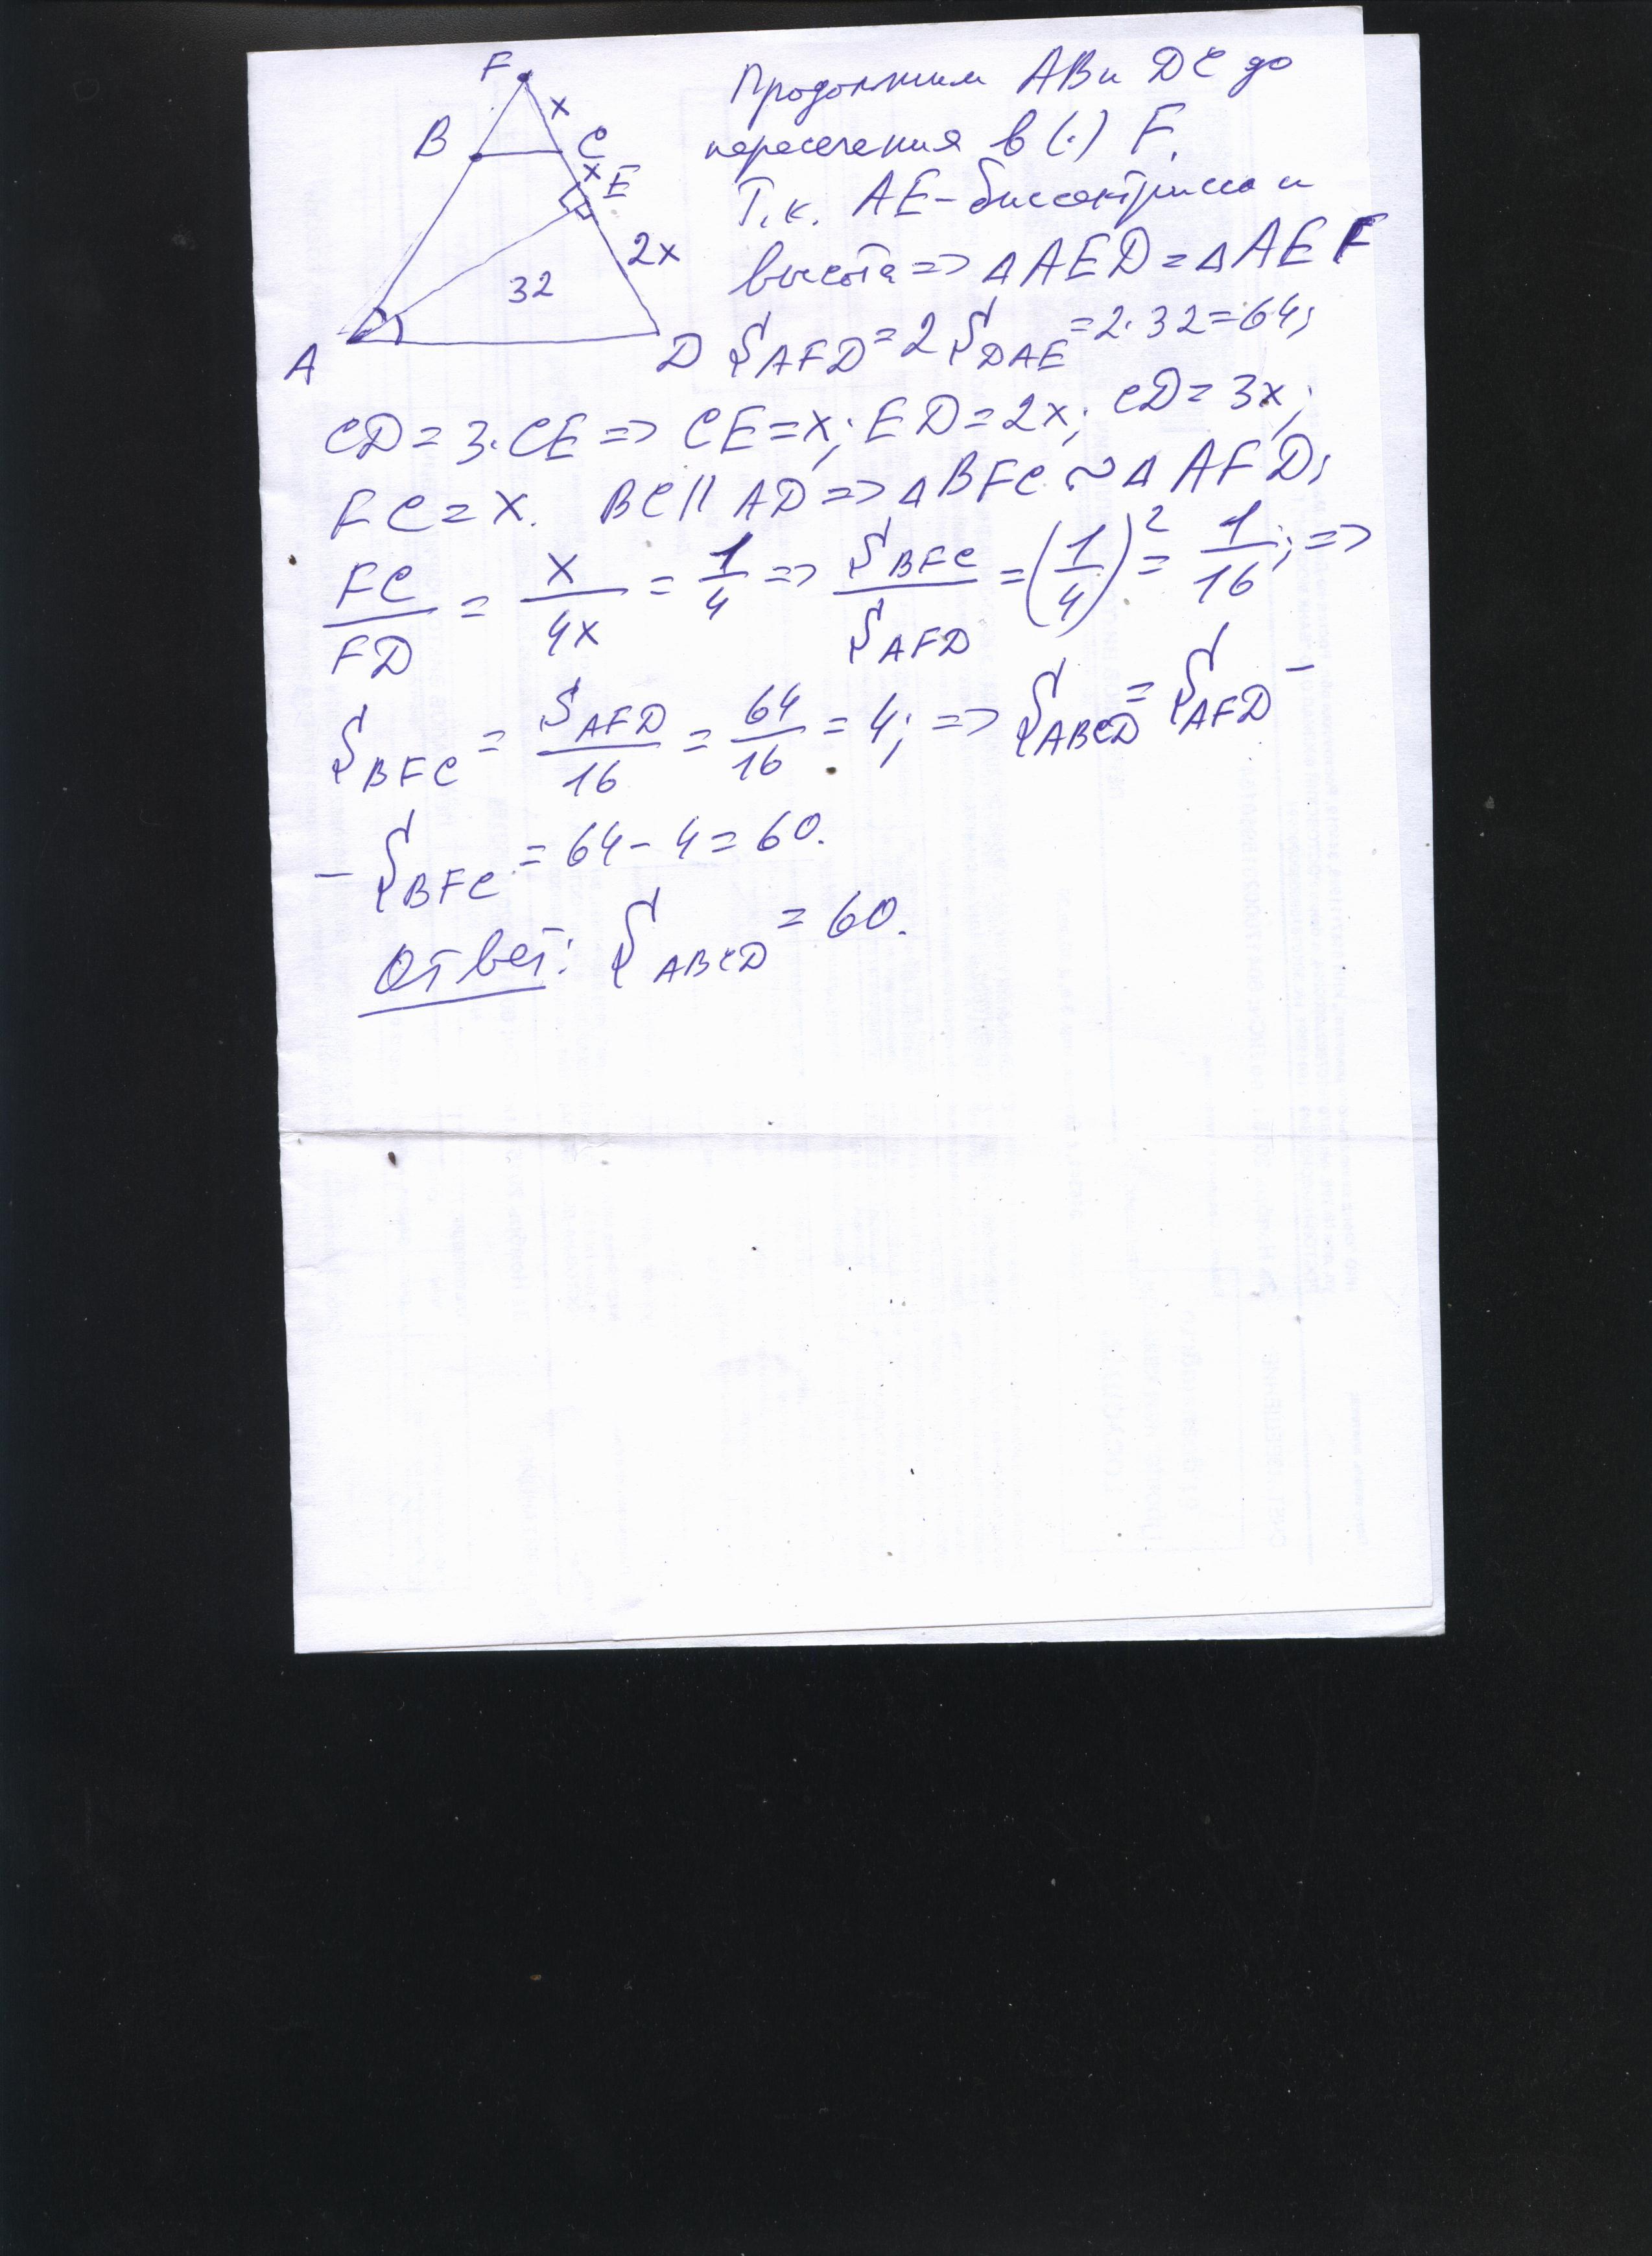 F
x
B
C
x
E
2x
32
A
D
Продолжим AB и DC до
пересечения в (·) F.
Т.к. AE-биссектрисса и
высота => △AED = △AEF
S_AFD = 2 S_DAE = 2·32 = 64;
CD = 3·CE => CE = x; ED = 2x; CD = 3x;
FC = x. BC || AD => △BFC ~ △AFD;
FC/FD = x/4x = 1/4 => S_BFC/S_AFD = (1/4)² = 1/16; =>
S_BFC = S_AFD/16 = 64/16 = 4; => S_ABCD = S_AFD -
- S_BFC = 64 - 4 = 60.
Ответ: S_ABCD = 60.